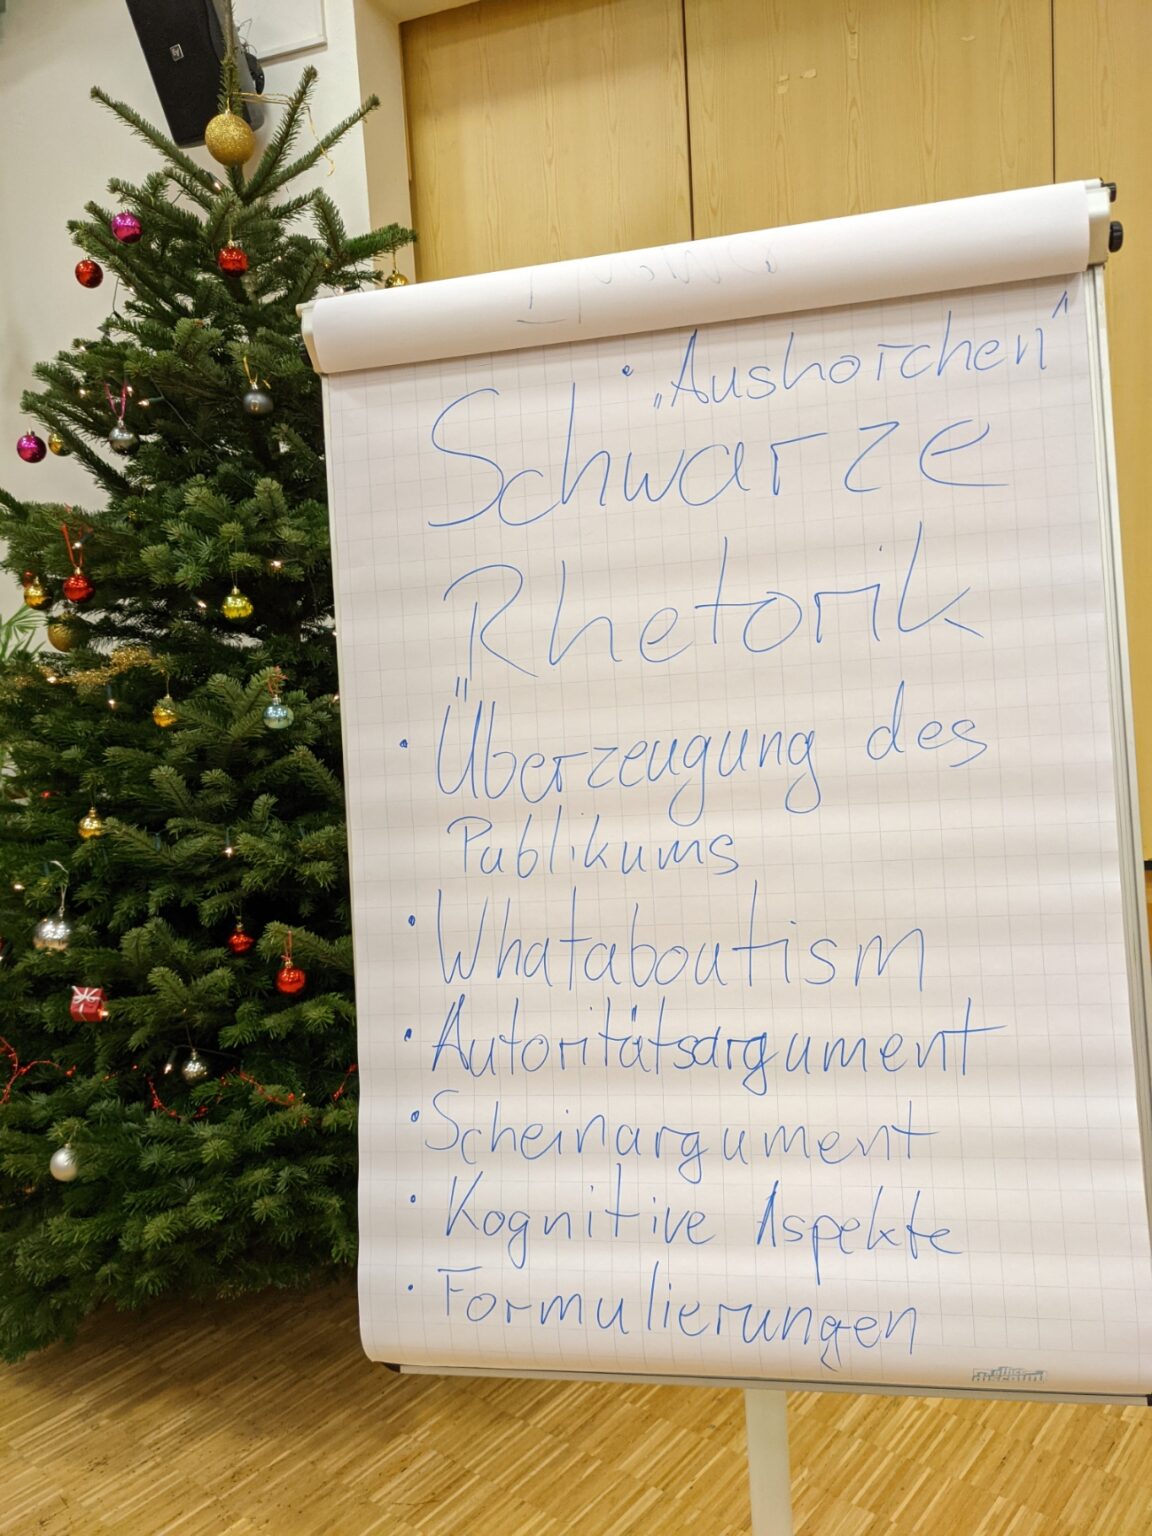 • „Aushorchen"
Schwarze
Rhetorik
• Überzeugung des
Publikums
• Whataboutism
• Autoritätsargument
• Scheinargument
• Kognitive Aspekte
• Formulierungen